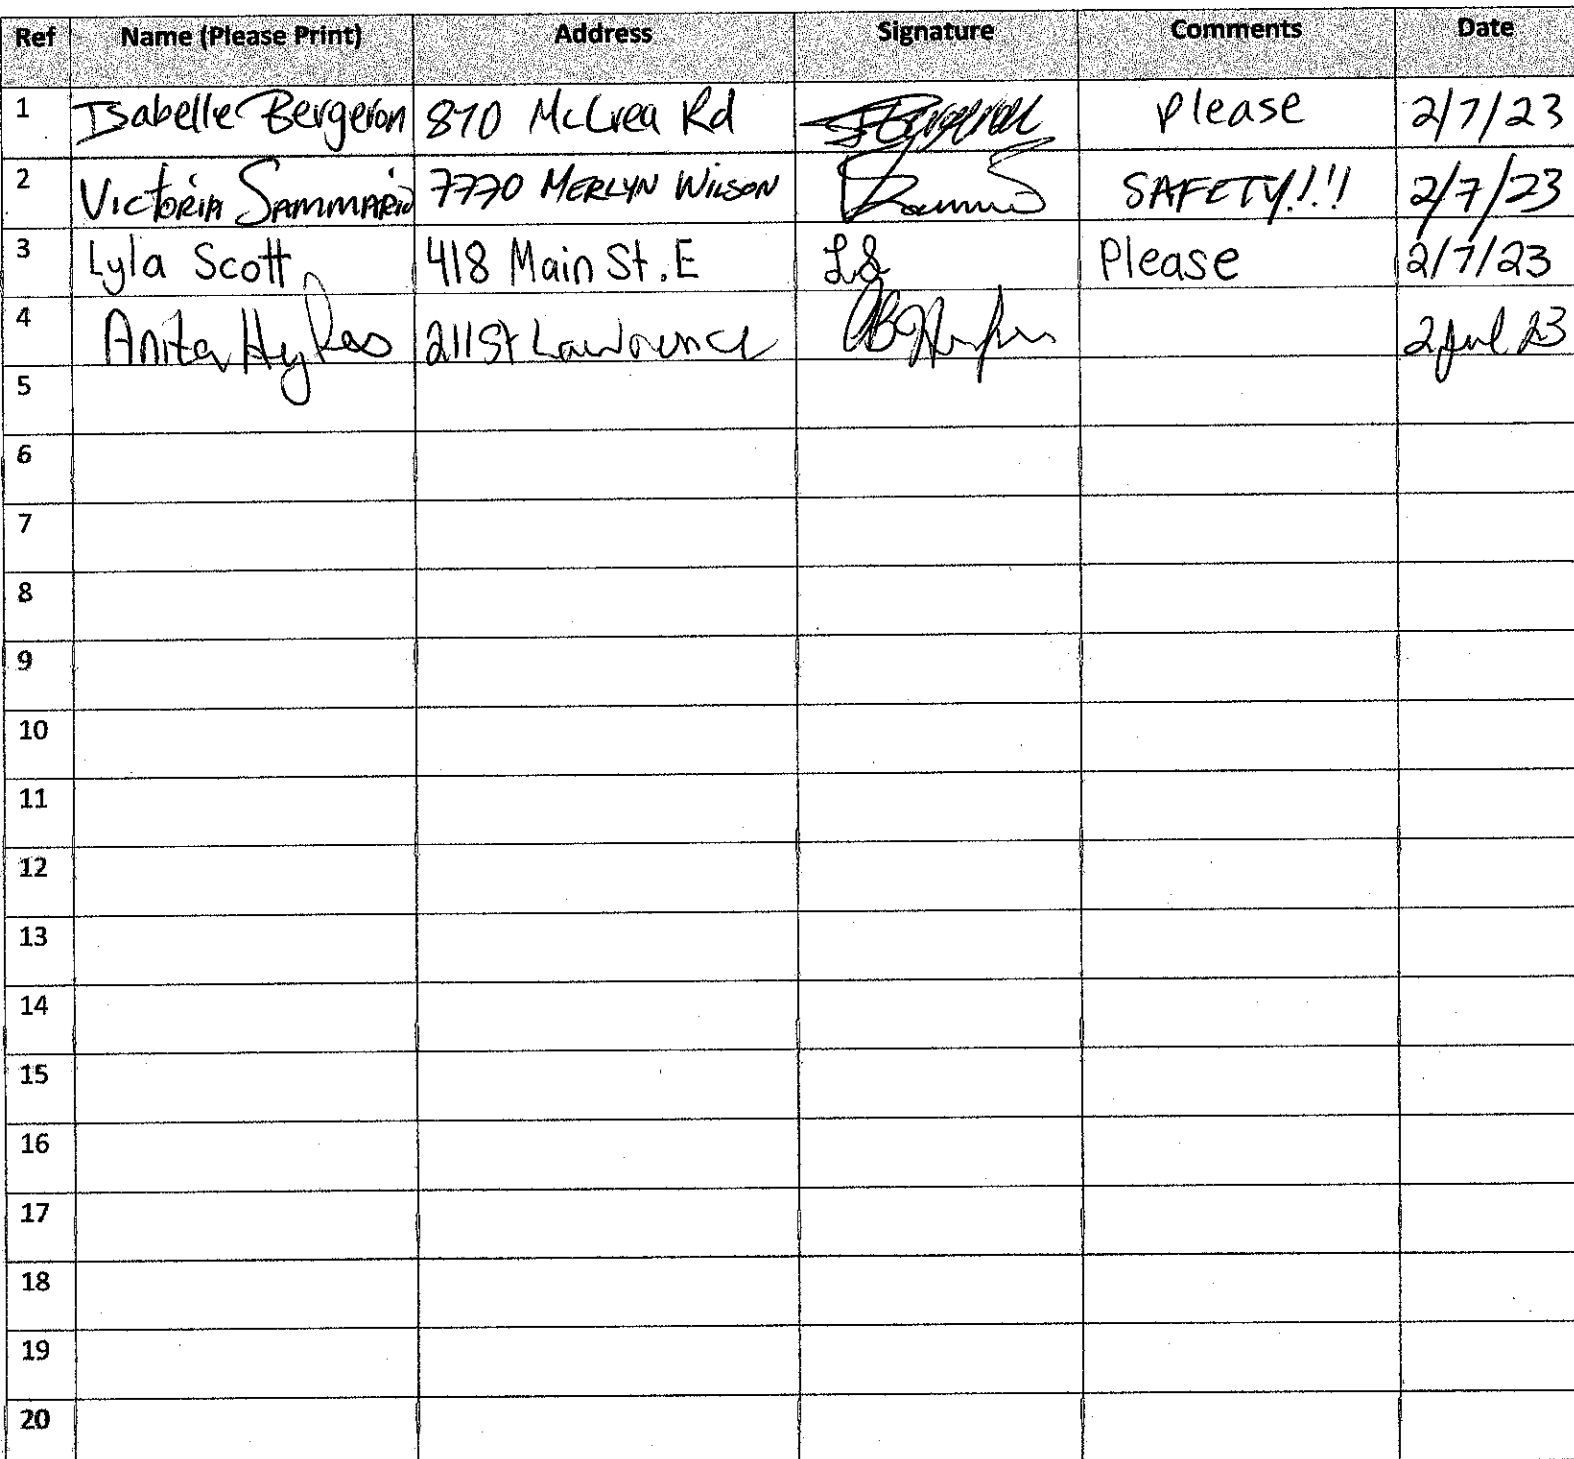 Ref Name (Please Print) Address Signature Comments Date
1 Isabelle Bergeron 870 McCrea Rd Please 2/7/23
2 Victoria Sammario 7770 Merlyn Wilson SAFETY!!! 2/7/23
3 Lyla Scott 418 Main St. E LS Please 2/7/23
4 Anita 211 St Lawrence 2 Jul 23
5
6
7
8
9
10
11
12
13
14
15
16
17
18
19
20